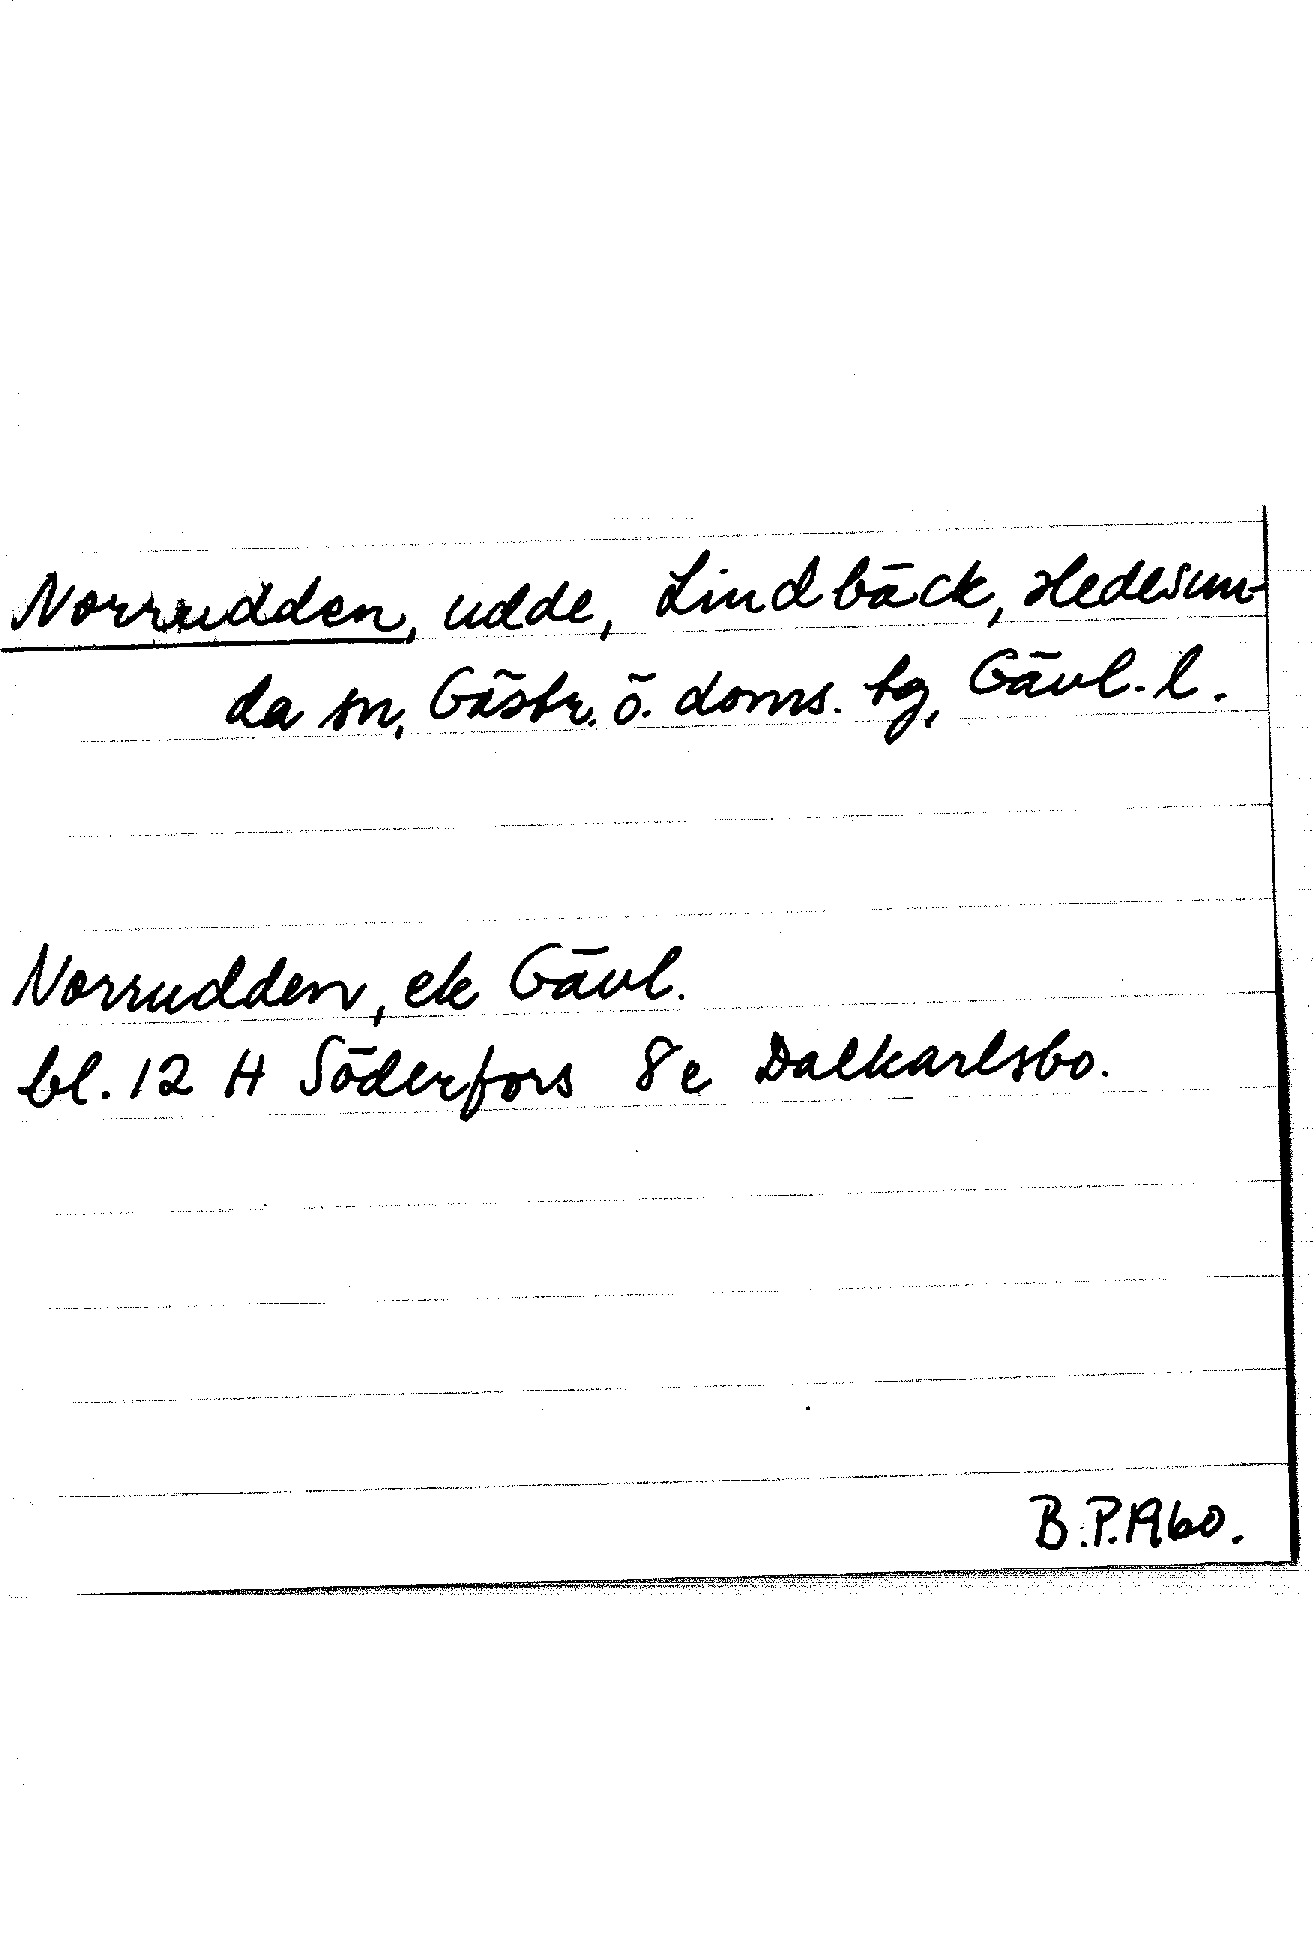 Norrudden, udde, Lindbäck, Hedesun-
da sn, Gästr. ö. doms. tg, Gävl. l.
Norrudden, ek Gävl.
bl. 12 H Söderfors 8 e Dalkarlsbo.
B.P.1960.